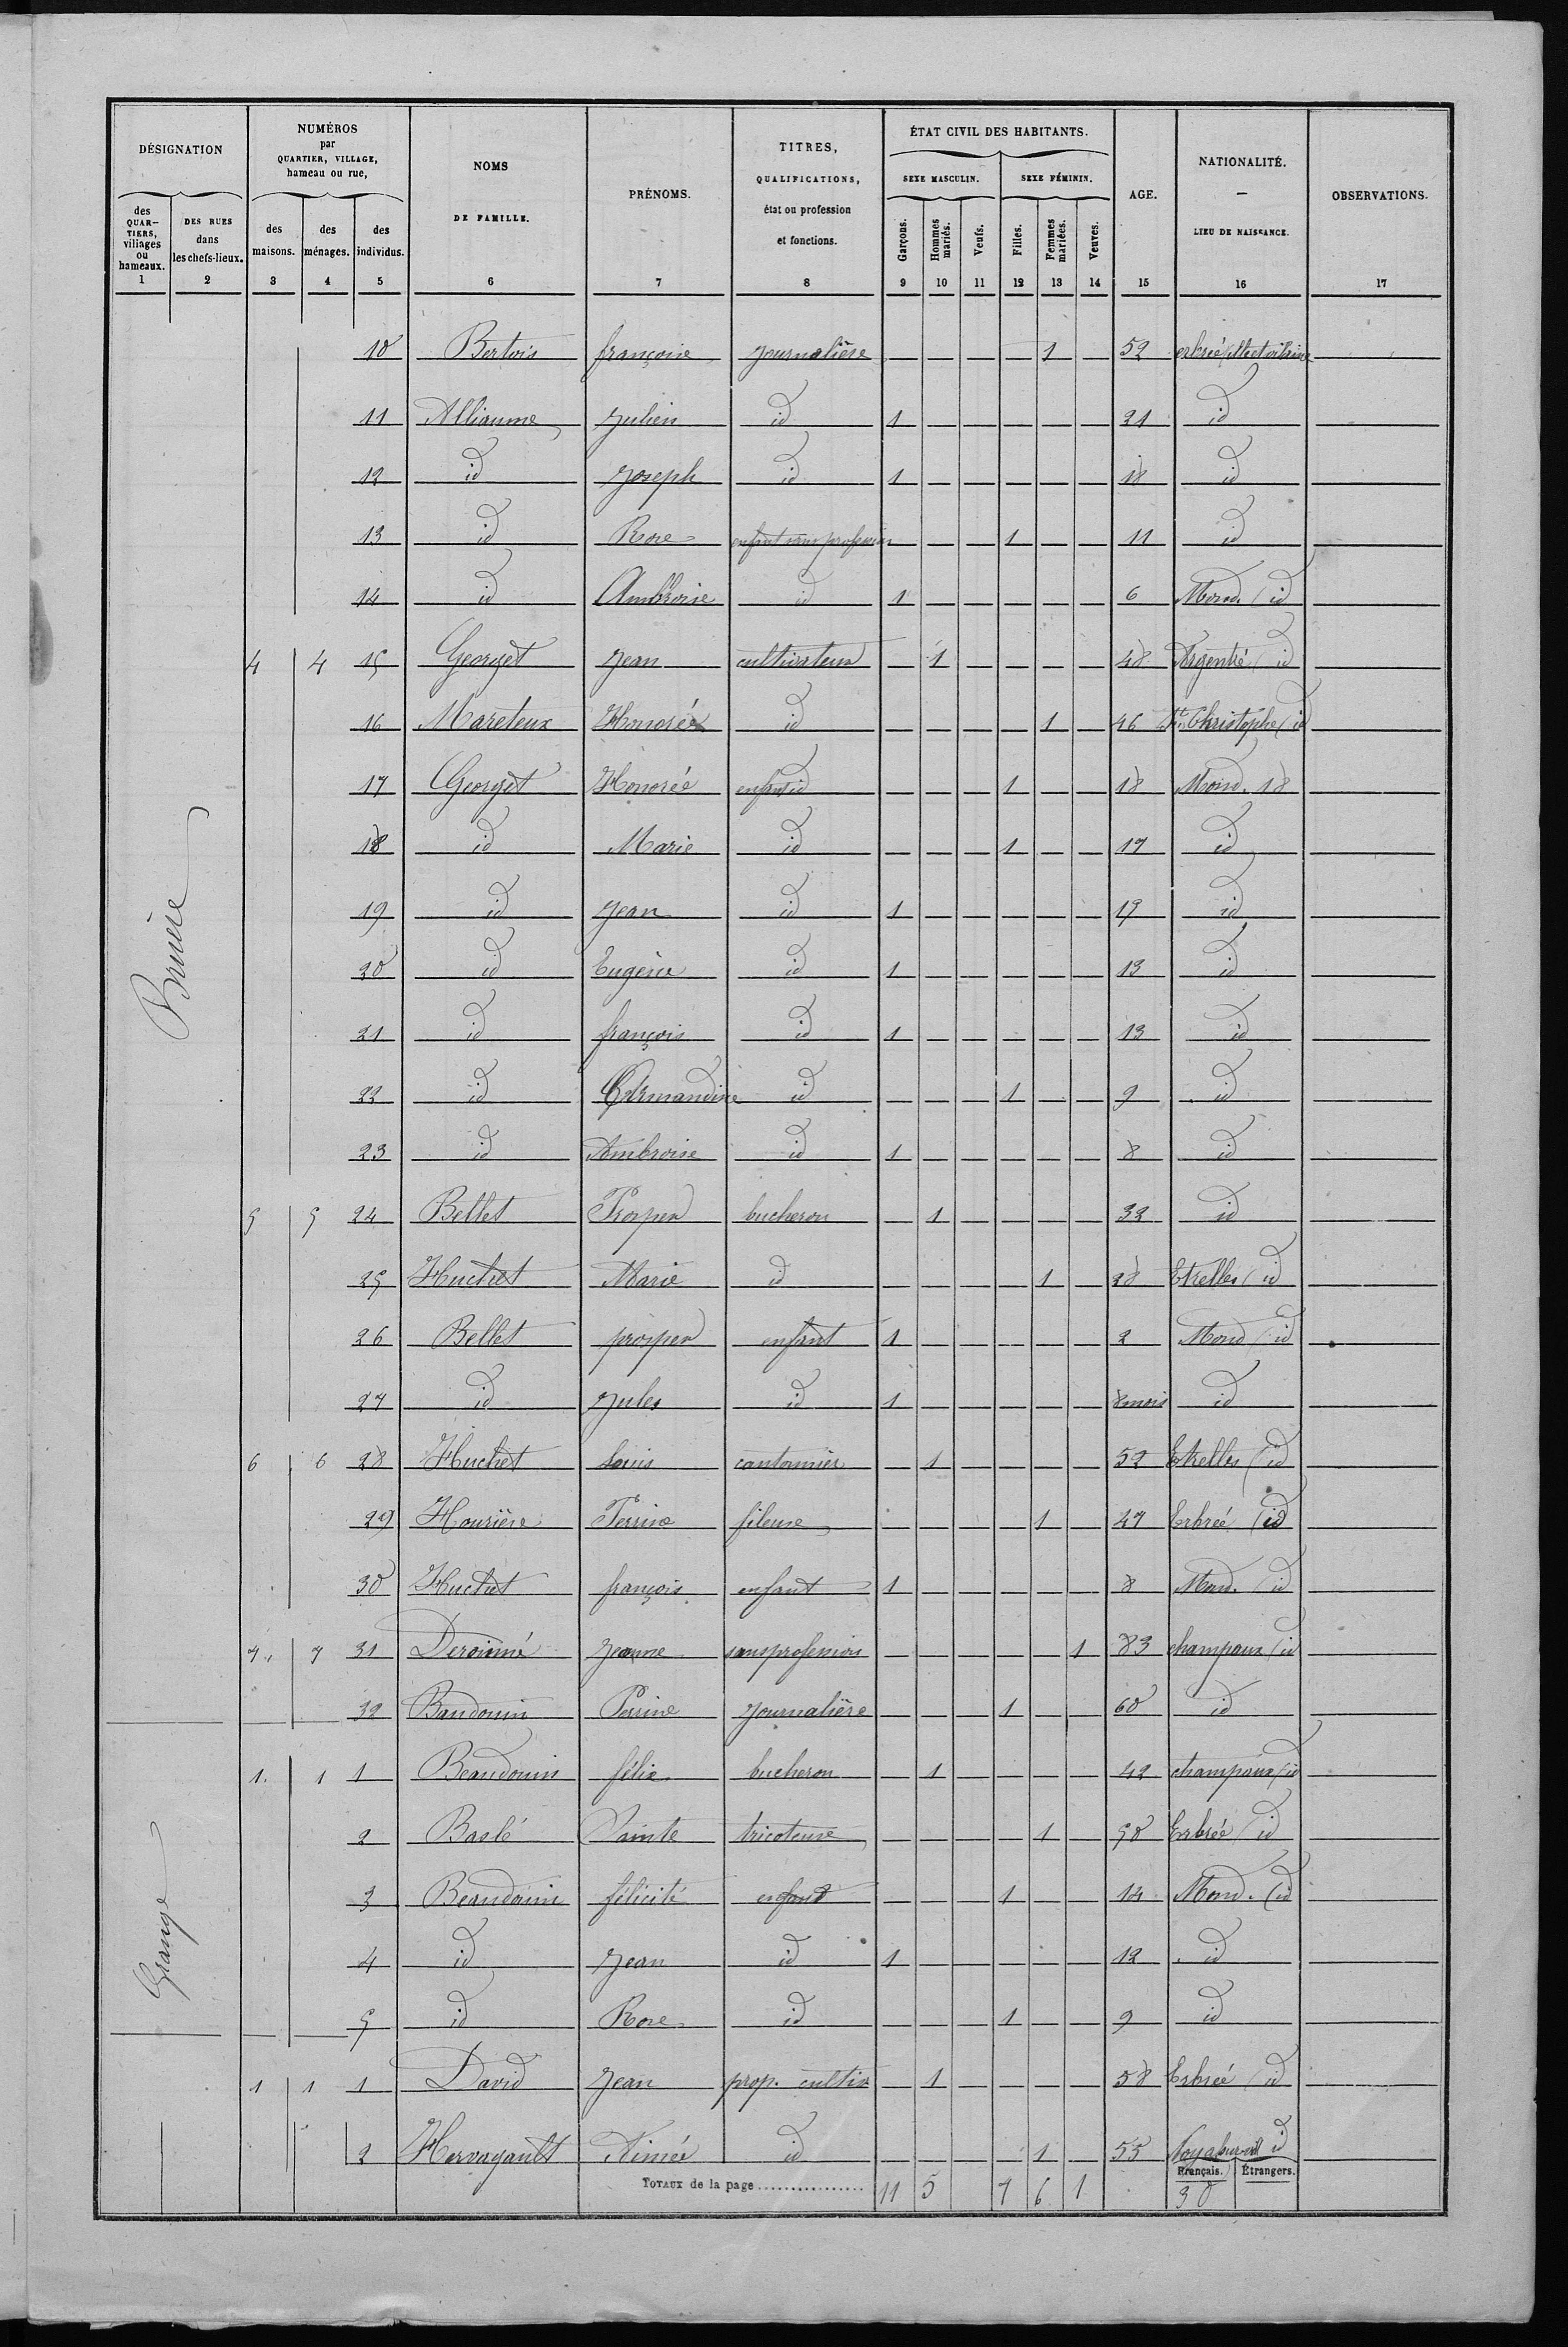 DÉSIGNATION
NUMÉROS
par
QUARTIER, VILLAGE,
hameau ou rue,
NOMS
DE FAMILLE.
PRÉNOMS.
TITRES,
QUALIFICATIONS,
état ou profession
et fonctions.
ÉTAT CIVIL DES HABITANTS.
SEXE MASCULIN.
SEXE FÉMININ.
AGE.
NATIONALITÉ.
—
LIEU DE NAISSANCE.
OBSERVATIONS.
des
QUAR-
TIERS,
villages
ou
hameaux.
DES RUES
dans
les chefs-lieux.
des
maisons.
des
ménages.
des
individus.
Garçons.
Hommes
mariés.
Veufs.
Filles.
Femmes
mariées.
Veuves.
1 2 3 4 5 6 7 8 9 10 11 12 13 14 15 16 17
Bruère
10 Bertois françoise journalière 1 52 erbrée
11 Alliaume Julien id 1 21 id
12 id Joseph id 1 18 id
13 id Rose enfant sans profession 1 11 id
14 id Ambroise id 1 6 Mond. (id
4 4 15 Georget Jean cultivateur 1 48 Argentré (id
16 Mareteux Honorée id 1 46 St Christophe (id
17 Georget Honorée enfant id 1 18 Mond. 18
18 id Marie id 1 17 id
19 id Jean id 1 19 id
20 id Eugène id 1 13 id
21 id françois id 1 13 id
22 id Armandine id 1 9 id
23 id Ambroise id 1 8 id
5 5 24 Bellet Prosper bucheron 1 32 id
25 Huchet Marie id 1 28 Etrelles (id
26 Bellet prosper enfant 1 2 Mond (id
27 id Jules id 1 8 mois id
6 6 28 Huchet Louis cantonnier 1 52 Etrelles (id
29 Hourière Perrine fileuse 1 47 Erbrée (id
30 Huchet françois enfant 1 8 Mond. (id
7 7 31 Deroinné Jeanne sans profession 1 83 champaux (id
32 Baudouin Perrine journalière 1 60 id
Grange
1 1 1 Beaudouin félix bucheron 1 42 champaux (id
2 Baslé Sainte tricoteuse 1 50 Erbrée (id
3 Beaudouin félicité enfant 1 14 Mond. (id
4 id Jean id 1 12 id
5 id Rose id 1 9 id
1 1 1 David Jean prop. cultiv 1 58 Erbrée (id
2 Hervagault Aimée id 1 55 id
Français. Étrangers.
TOTAUX de la page 11 5 7 6 1 30